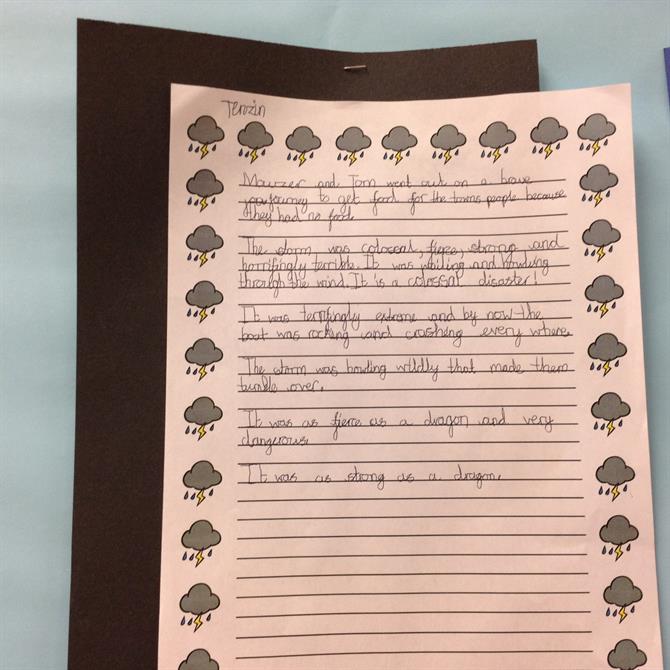 Tenzin
Mowzer and Tom went out on a brave
journey to get food for the towns people because
they had no food.
The storm was coloceal, fierce, strong and
horrifingly terrible. It was wailing and howling
through the wind. It is a colossal disaster!
It was terrifingly extreme and by now the
boat was rocking and crashing every where.
The storm was howling wildly that made them
tumble over.
It was as fierce as a dragon and very
dangerous.
It was as strong as a dragon.